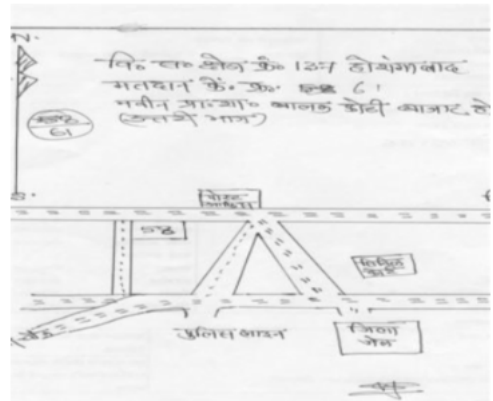 N.
वि० स० क्षेत्र क्रं० 137 होशंगाबाद
मतदान कें. क्र. 61
नवीन प्रा० शा० बालक कोठी बाजार हो
(उत्तरी भाग)
61
S.
पोस्ट
ऑफिस
सिविल
पुलिस लाइन
जिला
जेल